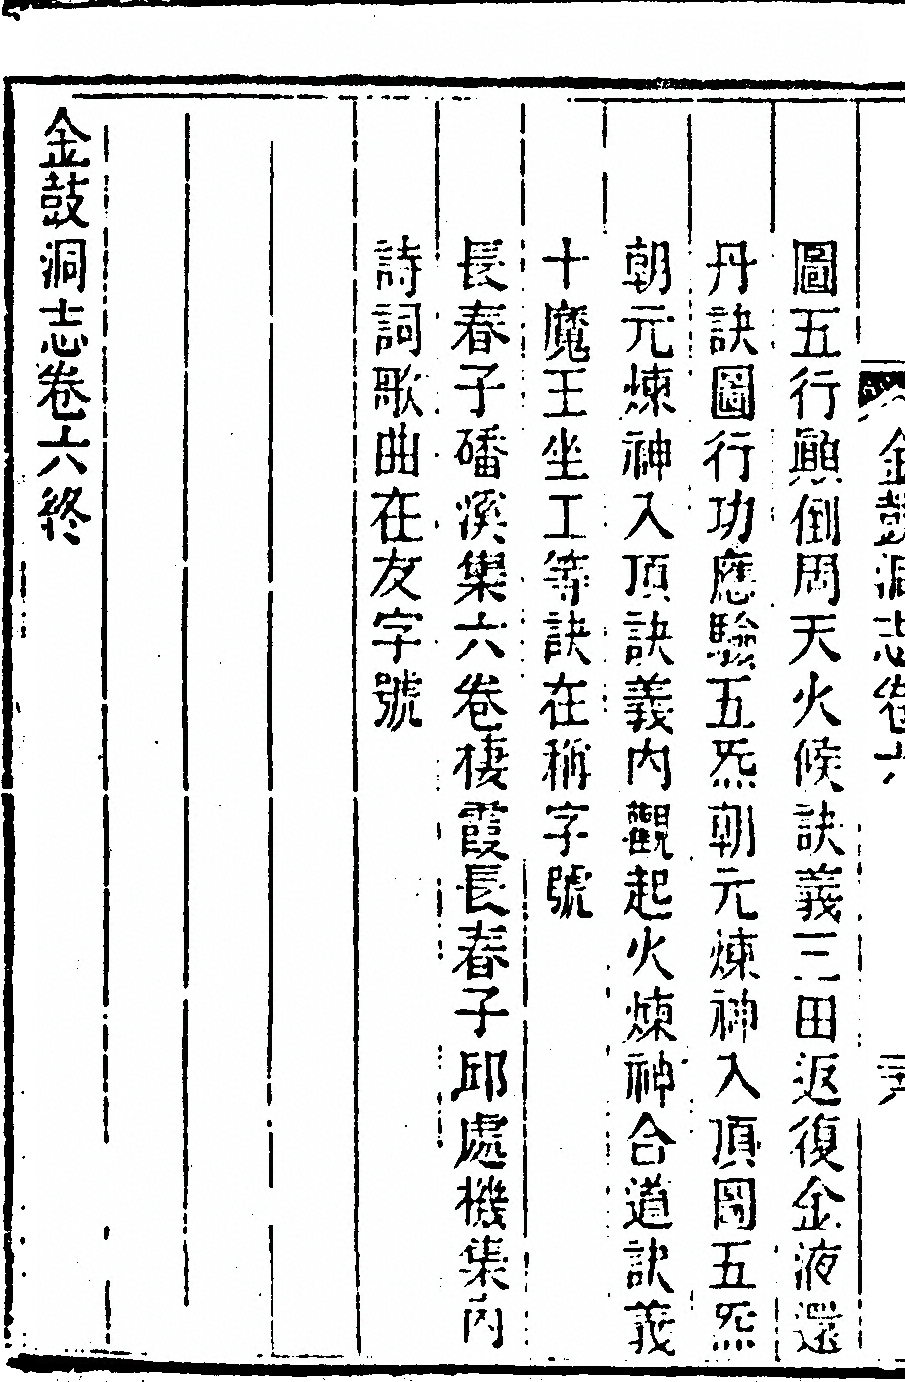 金鼓洞志卷六
圖五行顚倒周天火候訣義三田返復金液還
丹訣圖行功應驗五炁朝元煉神入頂圖五炁
朝元煉神入頂訣義內觀起火煉神合道訣義
十魔王坐工等訣在稱字號
長春子磻溪集六卷棲霞長春子邱處機集內
詩詞歌曲在友字號
金鼓洞志卷六終